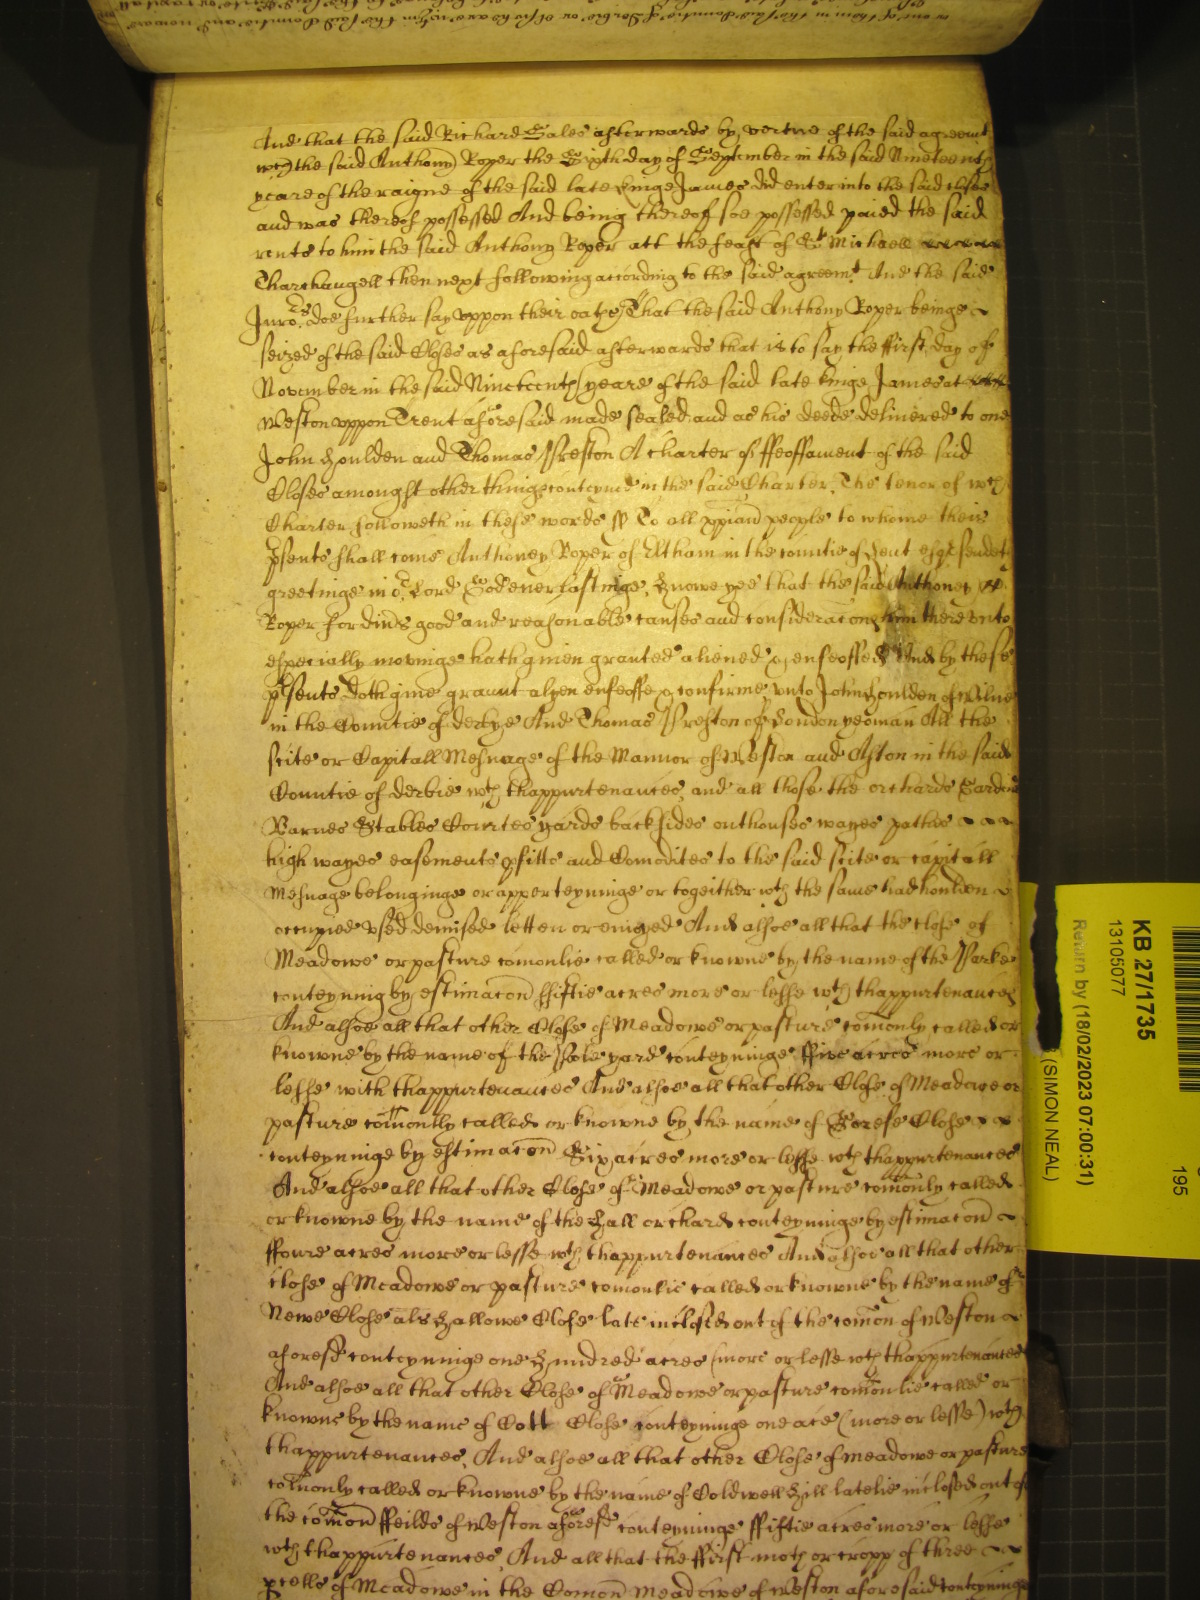 And that the said Richard Sales afterwards by vertue of the said agreemt
wth the said Anthony Roper the Sixth day of September in the said Nineteenth
yeare of the raigne of the said late kinge James did enter into the said closes
and was thereof possessed And being thereof soe possessed paied the said
rents to him the said Anthony Roper att the feast of St Michaell
Tharchangell then next following according to the said agreemt And the said
Juro.rs doe further say uppon their oathes That the said Anthony Roper beinge
seized of the said Closes as aforesaid afterwards that is to say the ffirst day of
November in the said Nineteenth yeare of the said late kinge James at
Weston uppon Trent aforesaid made sealed and as his deede delivered to one
John Houlden and Thomas Preston A charter of ffeoffament of the said
Closes amonghst other thinges conteyned in the said Charter, The tenor of wch
Charter followeth in these words ss To all xpian people to whome theis
psents shall come Anthoney Roper of Eltham in the countie of Kent esqr sendeth
greetinge in or Lord God everlastinge, Knowe yee that the said Anthoney
Roper for divs good and reasonable causes and consideracons him there unto
especially movinge hath given granted aliened & enfeoffed And by these
psents doth give graunt alyen enfeoffe & confirme unto John Houlden of Wilne
in the Countie of derbye And Thomas Preston of London yeoman All the
scite or Capitall Mesuage of the Mannor of Weston and Aston in the said
Countie of derbie wth thappurtenances, and all those the orchards Gardins
Barnes Stables Courtes yards backsides outhouses wayes pathes
high wayes easements pfitts and Comodites to the said scite or capitall
Mesuage belonginge or apperteyninge or togeither wth the same had houlden
occupied used demised letten or enioyed And alsoe all that the close of
Meadowe or pasture comonlie called or knowne by the name of the Parke
conteynnig by estimacon ffiftie acres more or lesse wth thappurtenances
And alsoe all that other Close of Meadowe or pasture comonly called or
knowne by the name of the yard conteyninge ffive acres more or
lesse with thappurtenances And alsoe all that other Close of Meadowe or
pasture comonly called or knowne by the name of Gorse Close
conteyninge by estimacon Six acres more or lesse wth thappurtenances
And alsoe all that other Close of Meadowe or pasture comonly called
or knowne by the name of the Hall orchard conteyninge by estimacon
ffoure acres more or lesse wth thappurtenances And alsoe all that other
close of Meadowe or pasture comonlie called or knowne by the name of
Newe Close als Hallowe Close late inclosed out of the comon of Weston
aforesd conteyninge one Hundred acres (more or lesse wth thappurtenances
And alsoe all that other Close of Meadowe or pasture comonlie called or
knowne by the name of Cott Close conteyninge one acre (more or lesse) wth
thappurtenances, And alsoe all that other Close of meadowe or pasture
comonly called or knowne by the name of Coldwell Hill latelie inclosed out of
the comon ffeilds of Weston aforesd conteyninge ffiftie acres more or lesse
wth thappurtenances, And all that the ffirst moth or cropp of three
pcells of Meadowe in the Comon Meadowe of Weston aforesaid conteyninge
KB 27/1735
13105077
Return by (18/02/2023 07:00:31)
(SIMON NEAL)
195